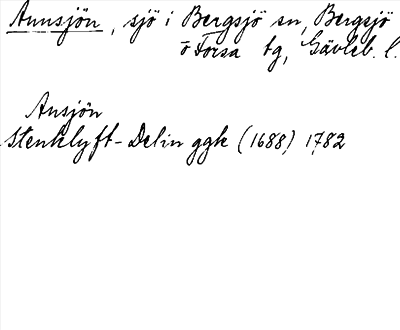 Annsjön, sjö i Bergsjö sn, Bergsjö
o Forsa tg, Gävleb. l.
Ansjön
Stenklyft-Delin ggk (1688) 1782